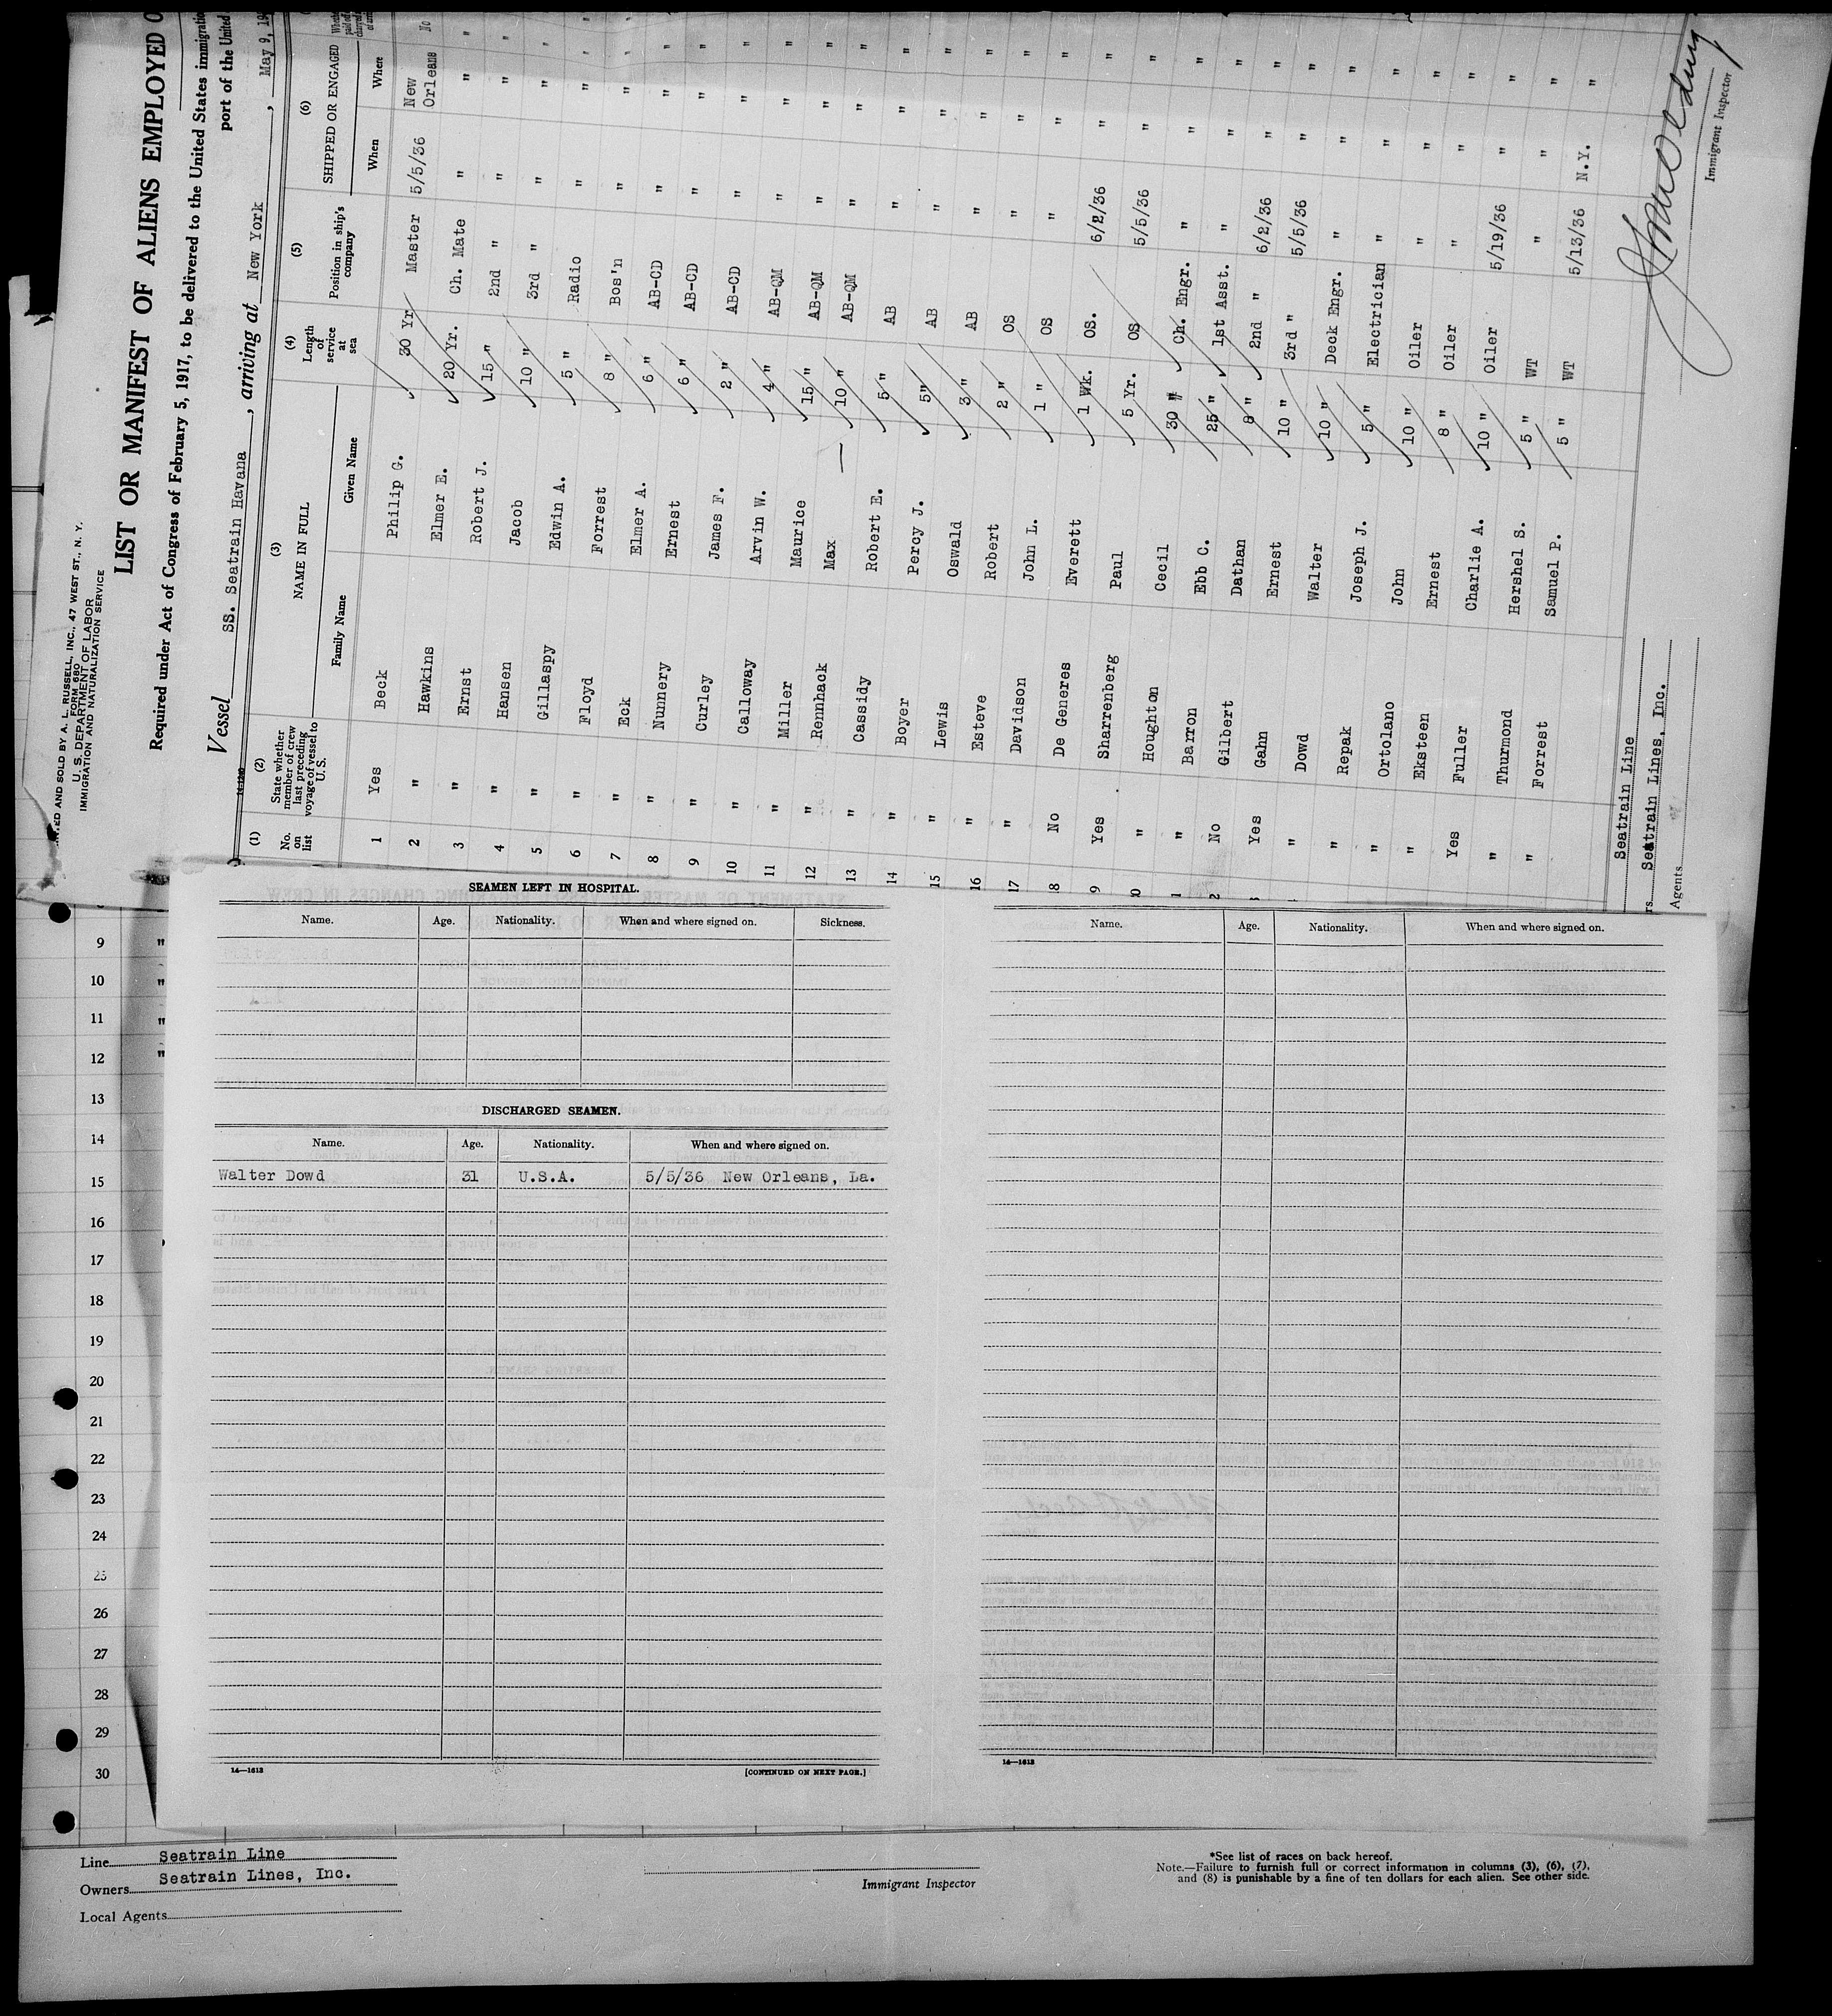 NTED AND SOLD BY A. L. RUSSELL, INC., 47 WEST ST., N. Y.
FORM 680
U. S. DEPARTMENT OF LABOR
IMMIGRATION AND NATURALIZATION SERVICE
LIST OR MANIFEST OF ALIENS EMPLOYED O
Required under Act of Congress of February 5, 1917, to be delivered to the United States immigration
port of the United
Vessel SS. Seatrain Havana, arriving at New York, May 9, 19
(1) (2) (3) (4) (5) (6)
No. on list State whether member of crew last preceding voyage of vessel to U.S. NAME IN FULL Length of service at sea Position in ship's company SHIPPED OR ENGAGED
Family Name Given Name When Where
1 Yes Beck Philip G. 30 Yr Master 5/5/36 New Orleans No
2 " Hawkins Elmer E. 20 Yr. Ch. Mate " " "
3 " Ernst Robert J. 15 " 2nd " " " "
4 " Hansen Jacob 10 " 3rd " " " "
5 " Gillaspy Edwin A. 5 " Radio " " "
6 " Floyd Forrest 8 " Bos'n " " "
7 " Eck Elmer A. 6 " AB-CD " " "
8 " Nunnery Ernest 6 " AB-CD " " "
9 " Curley James F. 2 " AB-CD " " "
10 " Calloway Arvin W. 4 " AB-QM " " "
11 " Miller Maurice 15 " AB-QM " " "
12 " Rennhack Max 10 " AB-QM " " "
13 " Cassidy Robert E. 5 " AB " " "
14 " Boyer Percy J. 5 " AB " " "
15 " Lewis Oswald 3 " AB " " "
16 " Esteve Robert 2 " OS " " "
17 " Davidson John L. 1 " OS " " "
18 No De Generes Everett 1 Wk. OS. 6/2/36 " "
9 Yes Sharrenberg Paul 5 Yr. OS 5/5/36 " "
0 " Houghton Cecil 30 " Ch. Engr. " " "
1 " Barron Ebb C. 25 " 1st Asst. " " "
2 No Gilbert Dathan 8 " 2nd " 6/2/36 " "
Yes Gahn Ernest 10 " 3rd " 5/5/36 " "
" Dowd Walter 10 " Deck Engr. " " "
" Repak Joseph J. 5 " Electrician " " "
" Ortolano John 10 " Oiler " " "
" Eksteen Ernest 8 " Oiler " " "
Yes Fuller Charlie A. 10 " Oiler 5/19/36 " "
" Thurmond Hershel S. 5 " WT " " "
" Forrest Samuel P. 5 " WT 5/13/36 N.Y. "
Seatrain Line
rs Seatrain Lines, Inc.
Agents
Immigrant Inspector
SEAMEN LEFT IN HOSPITAL.
Name. Age. Nationality. When and where signed on. Sickness.
DISCHARGED SEAMEN.
Name. Age. Nationality. When and where signed on.
Walter Dowd 31 U.S.A. 5/5/36 New Orleans, La.
14—1613
[CONTINUED ON NEXT PAGE.]
Name. Age. Nationality. When and where signed on.
14—1613
9 "
10 "
11 "
12 "
13
14
15
16
17
18
19
20
21
22
23
24
25
26
27
28
29
30
Line Seatrain Line
Owners Seatrain Lines, Inc.
Local Agents
Immigrant Inspector
*See list of races on back hereof.
Note.—Failure to furnish full or correct information in columns (3), (6), (7),
and (8) is punishable by a fine of ten dollars for each alien. See other side.